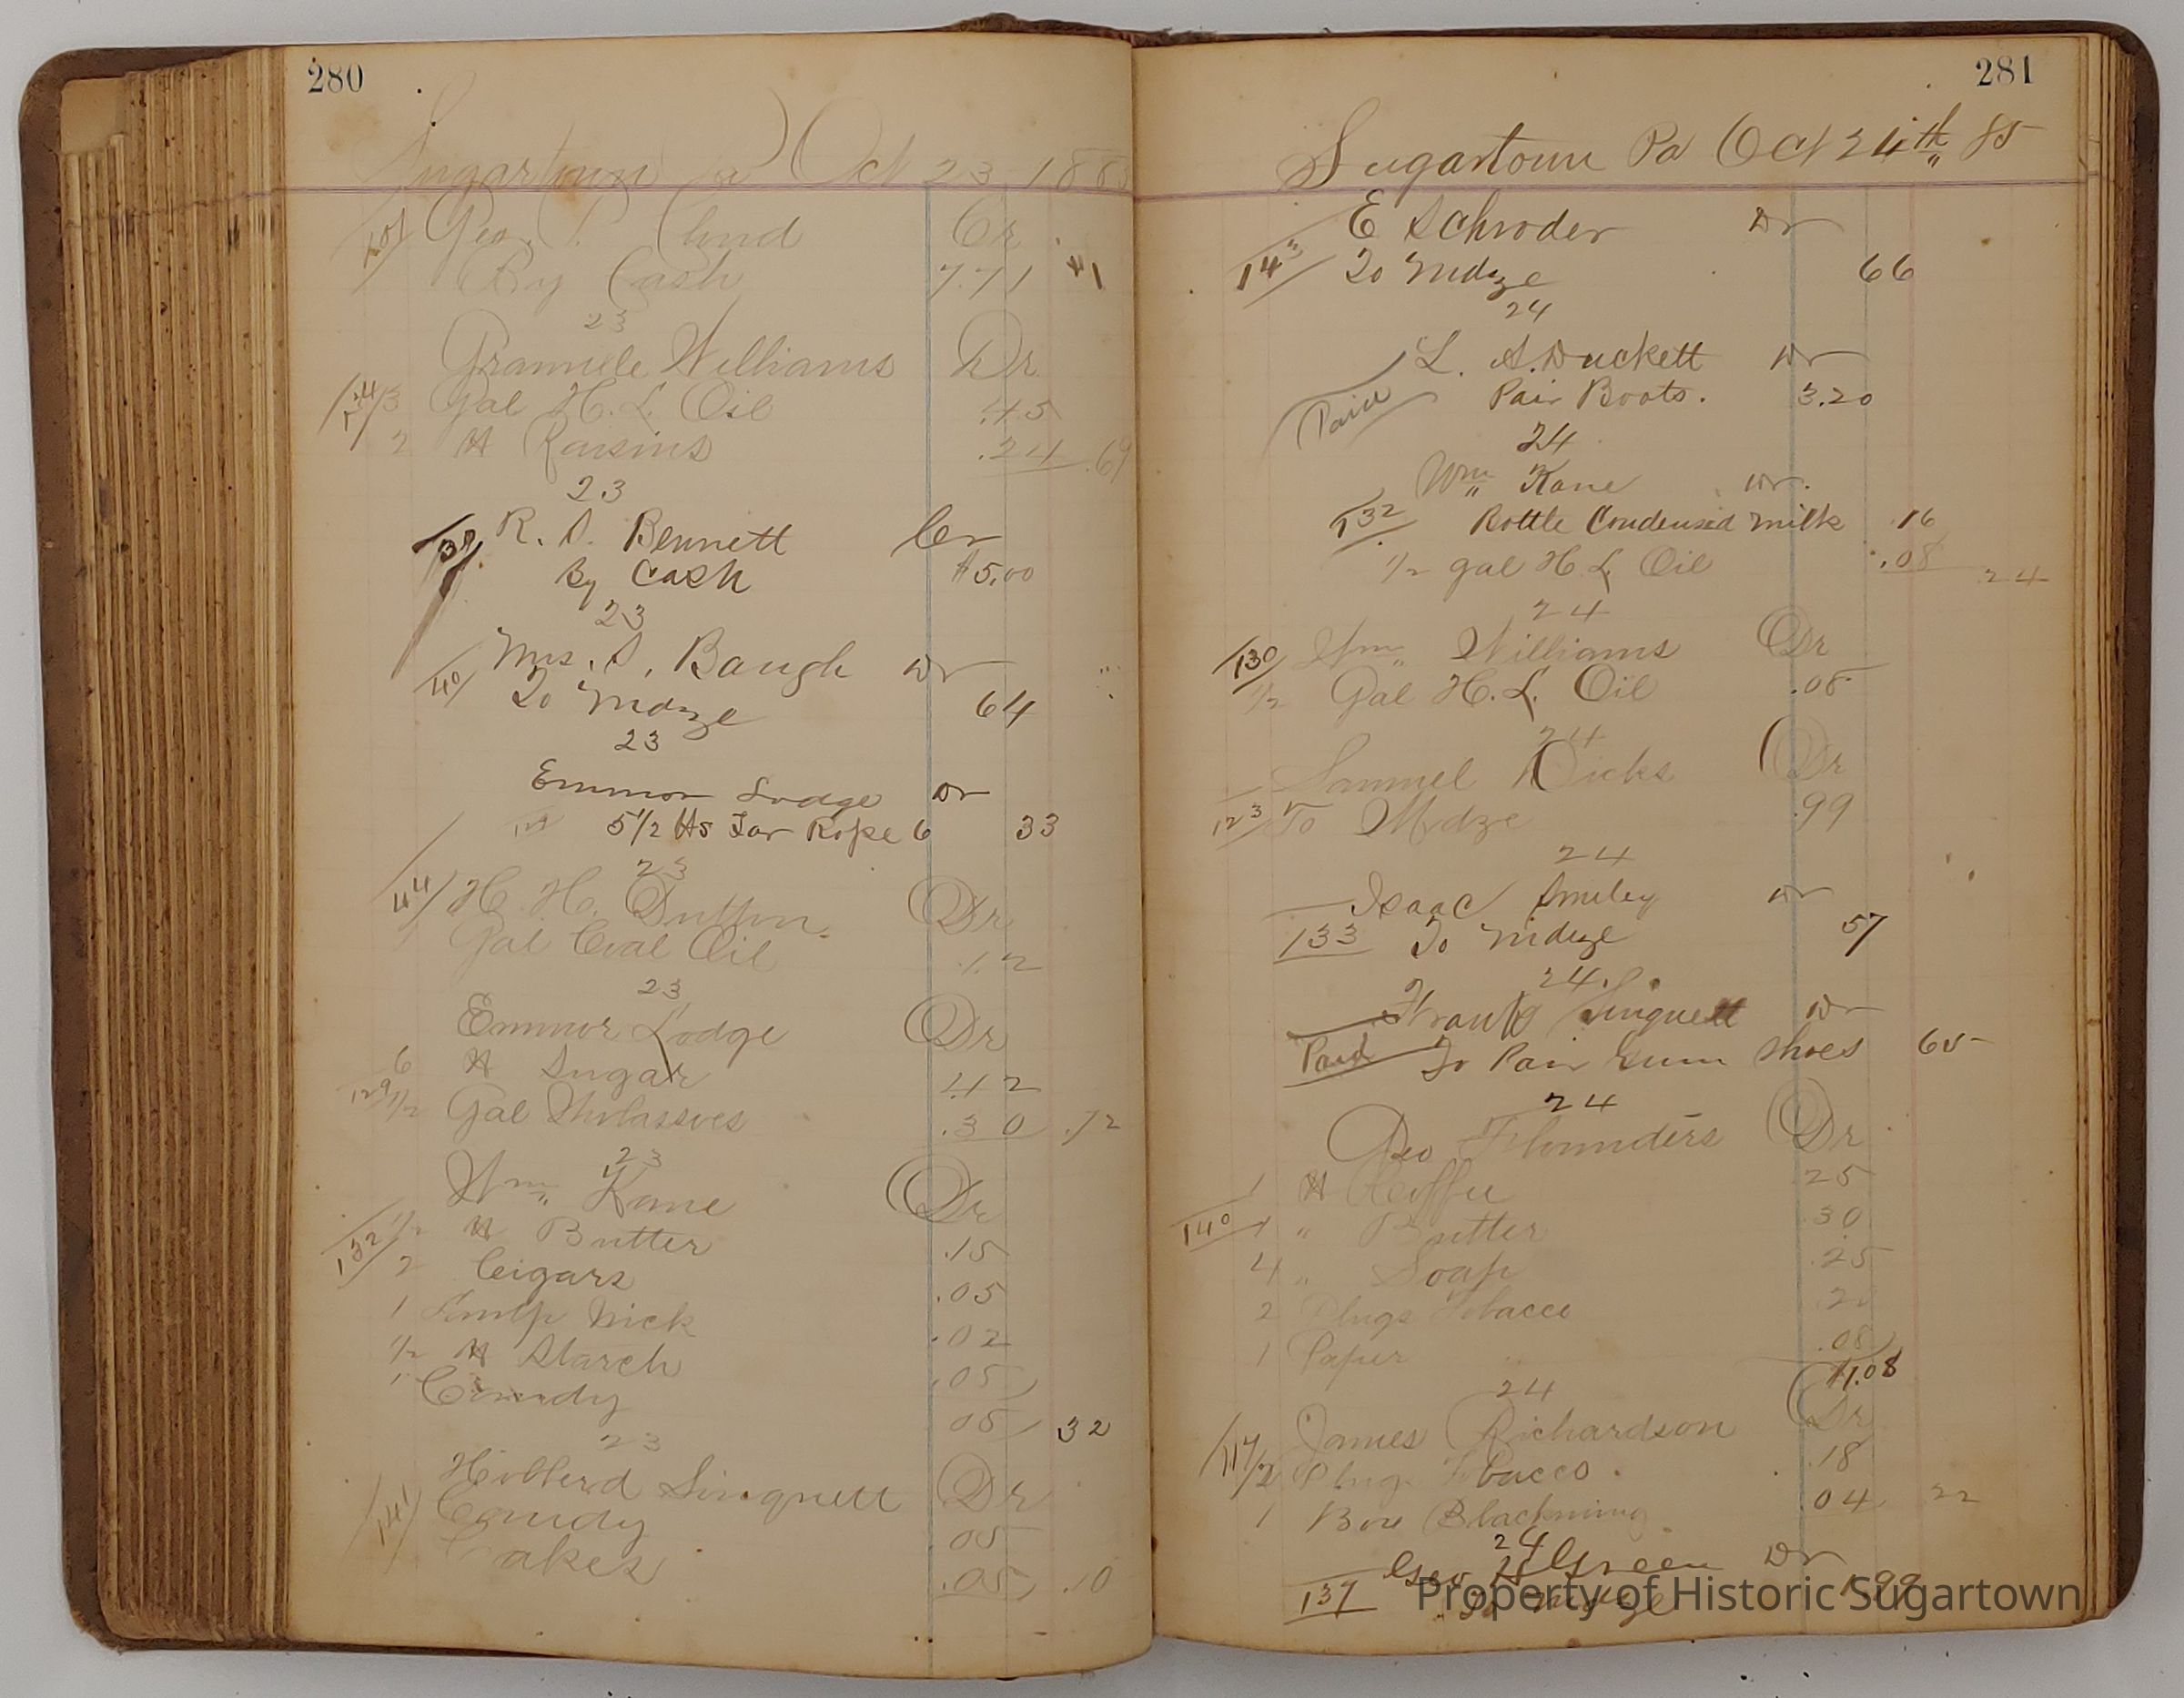 280
Sugartown Pa Oct 23 1885
101 Geo. P. Cr
By Cash 7.71
23
Granville Williams Dr
3 Gal H.L. Oil .45
2 lb Raisins .24 .69
23
R. S. Bennett Cr
By Cash $5.00
23
Mrs. S. Baugh Dr
40 To Mdze 64
23
Emmor Lodge Dr
5 1/2 lbs Tar Rope 6 33
23
44 H. H. Dutton Dr
1 Gal Coal Oil .12
23
Emmor Lodge Dr
6 lb Sugar .42
129 1/2 Gal Molasses .30 .72
23
Wm Kane Dr
132 1/2 lb Butter .15
2 Cigars .05
1 Lamp Wick .02
1/2 lb Starch .05
Candy 05 32
23
Hibberd Singuett Dr
141 Candy .05
Cakes .05 .10
281
Sugartown Pa Oct 24th 85
E Schroder Dr
143 To Mdze 66
24
L. S. Duckett Dr
Paid Pair Boots. 3.20
24
Wm Kane Dr.
132 Bottle Condensed Milk .16
1/2 gal H L Oil .08 24
24
130 Wm Williams Dr
1/2 Gal H.L. Oil .08
24
Samuel Dicks Dr
123 To Mdze .99
24
Isaac Smiley Dr
133 To Mdze 57
24
Frank Singuett Dr
Paid To Pair Gum Shoes 65
24
Geo Flounders Dr
1 lb Coffee 25
140 1 " Butter 30
4 " Soap .25
2 Plugs Tobacco .20
1 Paper " .08
$1.08
24
James Richardson Dr
117 2 Plug Tobacco .18
1 Box Blackning .04 22
24
Geo H Green Dr
137 To Mdze 1.99
Property of Historic Sugartown